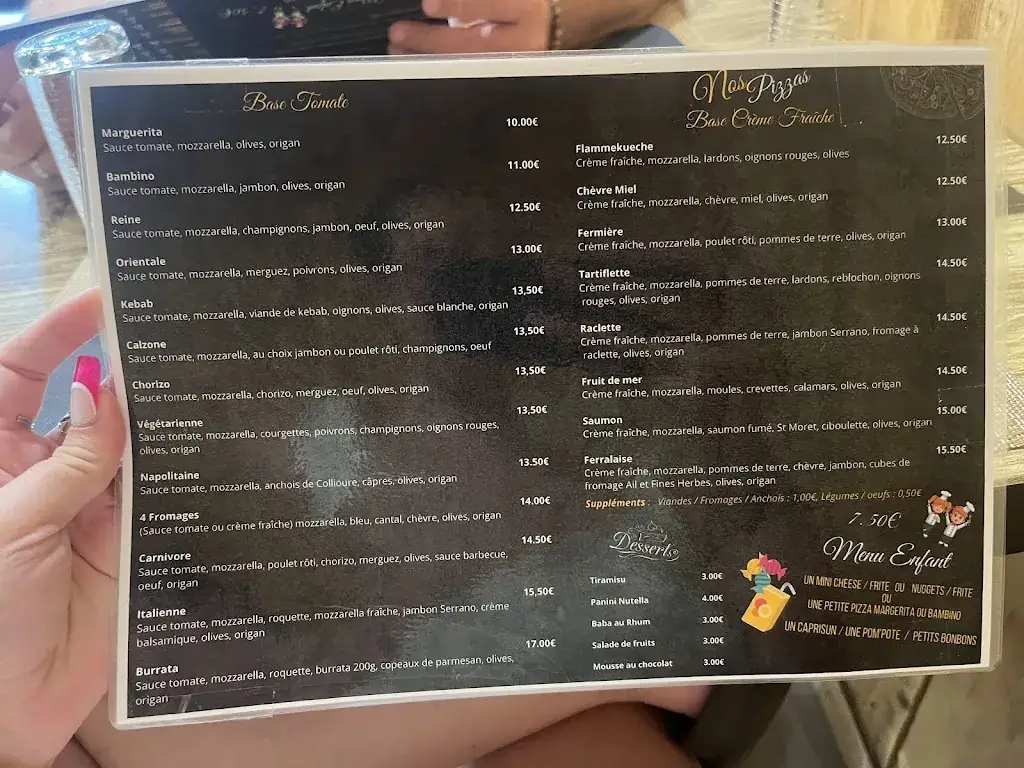 Base Tomate
Marguerita 10.00€
Sauce tomate, mozzarella, olives, origan
Bambino 11.00€
Sauce tomate, mozzarella, jambon, olives, origan
Reine 12.50€
Sauce tomate, mozzarella, champignons, jambon, oeuf, olives, origan
Orientale 13.00€
Sauce tomate, mozzarella, merguez, poivrons, olives, origan
Kebab 13,50€
Sauce tomate, mozzarella, viande de kebab, oignons, olives, sauce blanche, origan
Calzone 13,50€
Sauce tomate, mozzarella, au choix jambon ou poulet rôti, champignons, oeuf
Chorizo 13,50€
Sauce tomate, mozzarella, chorizo, merguez, oeuf, olives, origan
Végétarienne 13,50€
Sauce tomate, mozzarella, courgettes, poivrons, champignons, oignons rouges,
olives, origan
Napolitaine 13.50€
Sauce tomate, mozzarella, anchois de Collioure, câpres, olives, origan
4 Fromages 14.00€
(Sauce tomate ou crème fraîche) mozzarella, bleu, cantal, chèvre, olives, origan
Carnivore 14.50€
Sauce tomate, mozzarella, poulet rôti, chorizo, merguez, olives, sauce barbecue,
oeuf, origan
Italienne 15,50€
Sauce tomate, mozzarella, roquette, mozzarella fraîche, jambon Serrano, crème
balsamique, olives, origan
Burrata 17.00€
Sauce tomate, mozzarella, roquette, burrata 200g, copeaux de parmesan, olives,
origan
Nos Pizzas
Base Crème Fraîche
Flammekueche 12.50€
Crème fraîche, mozzarella, lardons, oignons rouges, olives
Chèvre Miel 12.50€
Crème fraîche, mozzarella, chèvre, miel, olives, origan
Fermière 13.00€
Crème fraîche, mozzarella, poulet rôti, pommes de terre, olives, origan
Tartiflette 14.50€
Crème fraîche, mozzarella, pommes de terre, lardons, reblochon, oignons
rouges, olives, origan
Raclette 14.50€
Crème fraîche, mozzarella, pommes de terre, jambon Serrano, fromage à
raclette, olives, origan
Fruit de mer 14.50€
Crème fraîche, mozzarella, moules, crevettes, calamars, olives, origan
Saumon 15.00€
Crème fraîche, mozzarella, saumon fumé, St Moret, ciboulette, olives, origan
Ferralaise 15.50€
Crème fraîche, mozzarella, pommes de terre, chèvre, jambon, cubes de
fromage Ail et Fines Herbes, olives, origan
Suppléments : Viandes / Fromages / Anchois : 1,00€, Légumes / oeufs : 0,50€
Desserts
Tiramisu 3.00€
Panini Nutella 4.00€
Baba au Rhum 3.00€
Salade de fruits 3.00€
Mousse au chocolat 3.00€
7.50€
Menu Enfant
UN MINI CHEESE / FRITE OU NUGGETS / FRITE
OU
UNE PETITE PIZZA MARGERITA OU BAMBINO
UN CAPRISUN / UNE POM'POTE / PETITS BONBONS